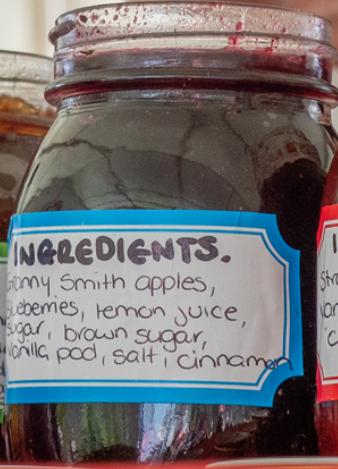 INGREDIENTS.
Granny Smith apples,
blueberries, lemon juice,
sugar, brown sugar,
vanilla pod, salt, cinnamon